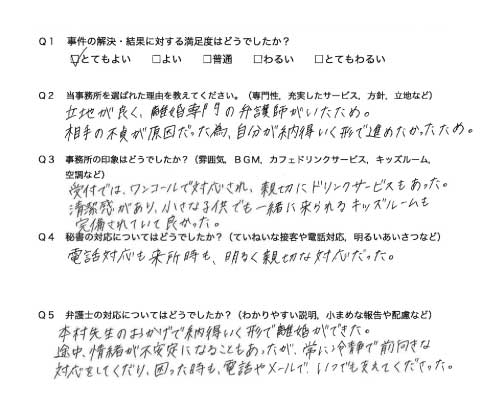 Q1 事件の解決・結果に対する満足度はどうでしたか？
☑とてもよい □よい □普通 □わるい □とてもわるい
Q2 当事務所を選ばれた理由を教えてください。（専門性，充実したサービス，方針，立地など）
立地が良く、離婚専門の弁護師がいたため。
相手の不貞が原因だった為、自分が納得いく形で進めたかったため。
Q3 事務所の印象はどうでしたか？（雰囲気，BGM，カフェドリンクサービス，キッズルーム，
空調など）
受付では、ワンコールで対応され、親切にドリンクサービスもあった。
清潔感があり、小さな子供でも一緒に来られるキッズルームも
完備されていて良かった。
Q4 秘書の対応についてはどうでしたか？（ていねいな接客や電話対応，明るいあいさつなど）
電話対応も来所時も、明るく親切な対応だった。
Q5 弁護士の対応についてはどうでしたか？（わかりやすい説明，小まめな報告や配慮など）
本村先生のおかげで納得いく形で離婚ができた。
途中、情緒が不安定になることもあったが、常に冷静で前向きな
対応をしてくださり、困った時も、電話やメールで、いつでも支えてくださった。